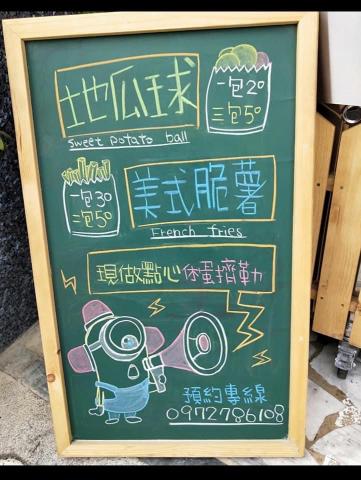 地瓜球
sweet potato ball
一包20
三包50
一包30
二包50
美式脆薯
French fries
現做點心休蛋擠勒
預約專線
0972786108